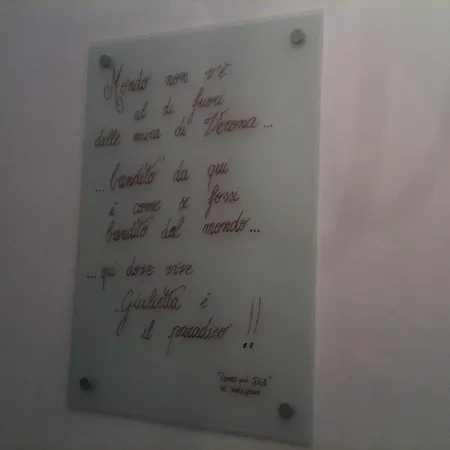 Mondo non v'è
al di fuori
delle mura di Verona...
...bandito da qui
è come se fossi
bandito dal mondo...
...qui dove vive
Giulietta è
il paradiso !!